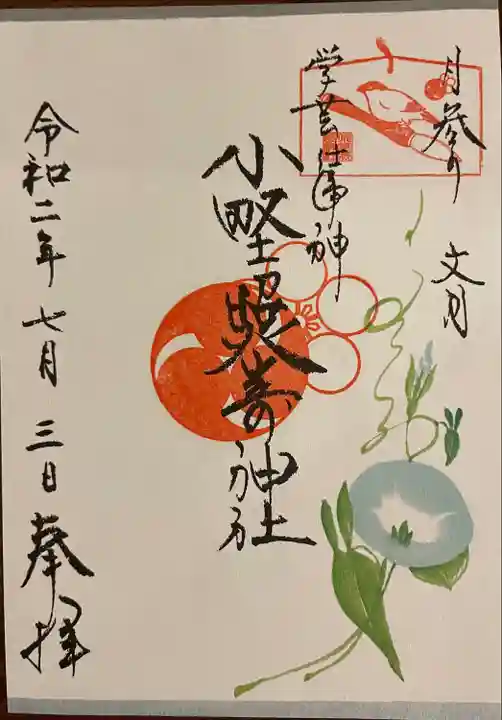 月参り 文月
学芸之御神
小野照崎神社
令和二年七月三日奉拝